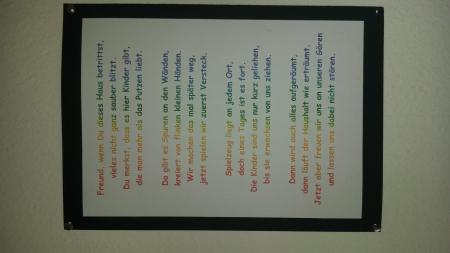 Freund, wenn Du dieses Haus betrittst,
vieles nicht ganz sauber blitzt.
Du merkst, dass es hier Kinder gibt,
die man mehr als das Putzen liebt.
Da gibt es Spuren an den Wänden,
kreiert von flinken kleinen Händen.
Wir machen das mal später weg,
jetzt spielen wir zuerst Versteck.
Spielzeug liegt an jedem Ort,
doch eines Tages ist es fort.
Die Kinder sind uns nur kurz geliehen,
bis sie erwachsen von uns ziehen.
Dann wird auch alles aufgeräumt,
dann läuft der Haushalt wie erträumt.
Jetzt aber freuen wir uns an unseren Gören
und lassen uns dabei nicht stören.